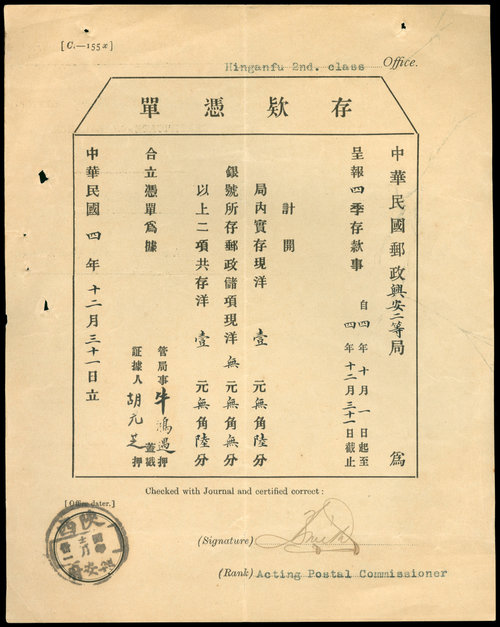 [C.—155x]
Hinganfu 2nd. class Office.
存欵憑單
中華民國郵政興安二等局 為
呈報四季存款事 自四年十月一日起至
四年十二月三十一日截止
計開
局內實存現洋 壹 元無角陸分
銀號所存郵政儲項現洋 無 元無角無分
以上二項共存洋 壹 元無角陸分
合立憑單為據
管局事 牛鴻遇 押
証據人 胡元芝 蓋戳 押
中華民國 四 年 十二月三十一日立
Checked with Journal and certified correct:
[Office dater.]
陝西
興安
(Signature)
(Rank) Acting Postal Commissioner